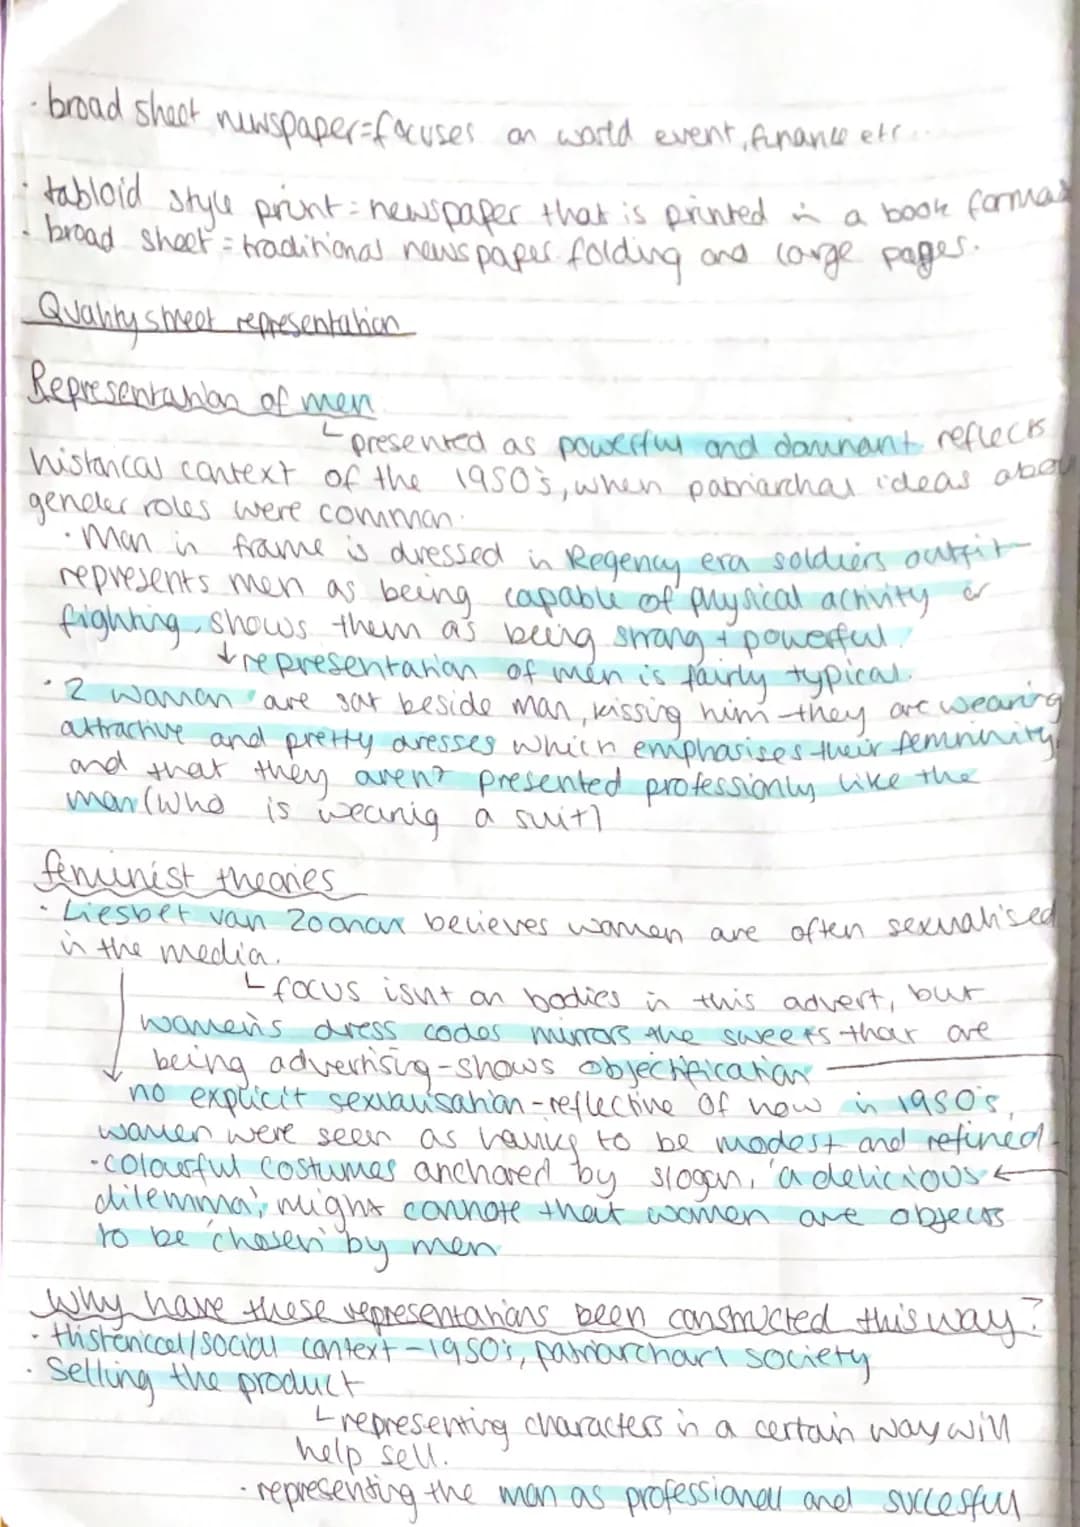 · broad sheet newspaper = focuses on world event, finance etc...
· tabloid style print = newspaper that is printed in a book format
· broad sheet = traditional newspaper folding and large pages.
Quality street representation
Representation of men
presented as powerful and dominant reflects
historical context of the 1950's, when patriarchal ideas about
gender roles were common.
· Man in frame is dressed in Regency era soldiers outfit -
represents men as being capable of physical activity or
frighting, shows them as being strong + powerful.
↓ representation of men is fairly typical.
· 2 woman are sat beside man, kissing him - they are wearing
attractive and pretty dresses which emphasises their femininity,
and that they aren't presented professionly like the
man (who is wearnig a suit)
feminist theories
· Liesbet van Zoonan believes women are often sexualised
in the media.
focus isnt on bodies in this advert, but
women's dress codes mirrors the sweets that are
being advertisig - shows objectification
no explicit sexualisation - reflective of how in 1950's,
women were seen as having to be modest and refined.
· colourful costumes anchored by slogan, 'a delicious
dilemma', might connote that women are objects
to be 'chosen' by men
Why have these representations been constructed this way?
· Historical/social context - 1950's, patriarcharl society
· Selling the product
representing characters in a certain way will
help sell.
· representing the man as professionall and succesful